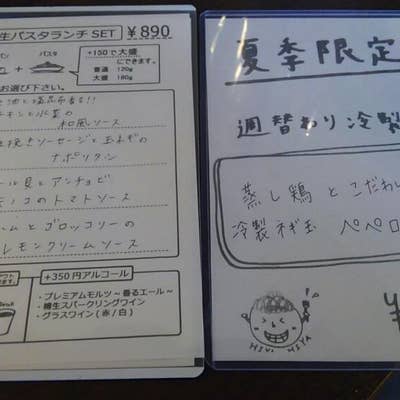 生パスタランチSET ¥890
パン パスタ
+150で大盛
にできます。
普通 120g
大盛 180g
お選び下さい。
和風ソース
挽きソーセージと玉ネギの
ナポリタン
ール貝とアンチョビ
ノコのトマトソース
ームとブロッコリーの
レモンクリームソース
+350円アルコール
・プレミアムモルツ~香るエール~
・樽生スパークリングワイン
・グラスワイン(赤/白)
夏季限定
週替わり冷製
蒸し鶏とこだわ
冷製ネギ玉 ペペロ
¥